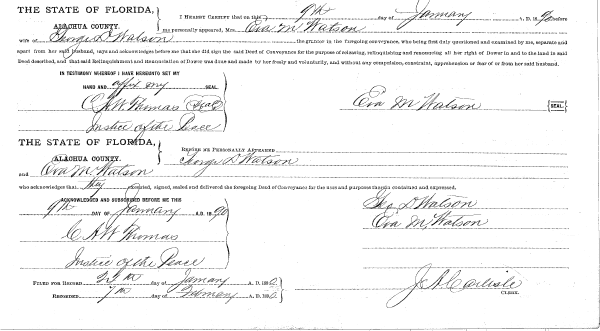 THE STATE OF FLORIDA,
ALACHUA COUNTY.
I HEREBY CERTIFY that on this 9th day of January A. D. 1890 before
me personally appeared, Mrs. Eva M Watson
wife of George D Watson the grantor in the foregoing conveyance, who being first duly questioned and examined by me, separate and
apart from her said husband, says and acknowledges before me that she did sign the said Deed of Conveyance for the purpose of releasing, relinquishing and renouncing all her right of Dower in and to the land in said
Deed described, and that said Relinquishment and Renunciation of Dower was done and made to her freely and voluntarily, and without any compulsion, constraint, apprehension or fear of or from her said husband.
IN TESTIMONY WHEREOF I HAVE HEREUNTO SET MY
HAND AND affix my SEAL
C. A. W. Thomas Seal
Justice of the Peace
Eva M Watson SEAL.
THE STATE OF FLORIDA,
ALACHUA COUNTY.
BEFORE ME PERSONALLY APPEARED George D Watson
and Eva M Watson
who acknowledges that they signed, sealed and delivered the foregoing Deed of Conveyance for the uses and purposes therein contained and expressed.
ACKNOWLEDGED AND SUBSCRIBED BEFORE ME THIS
9th DAY OF January A.D. 1890
C A W Thomas
Justice of the Peace
Geo D Watson
Eva M Watson
FILED FOR RECORD day of January A. D. 189
RECORDED 7th day of A. D. 189
J A Carlisle
CLERK.